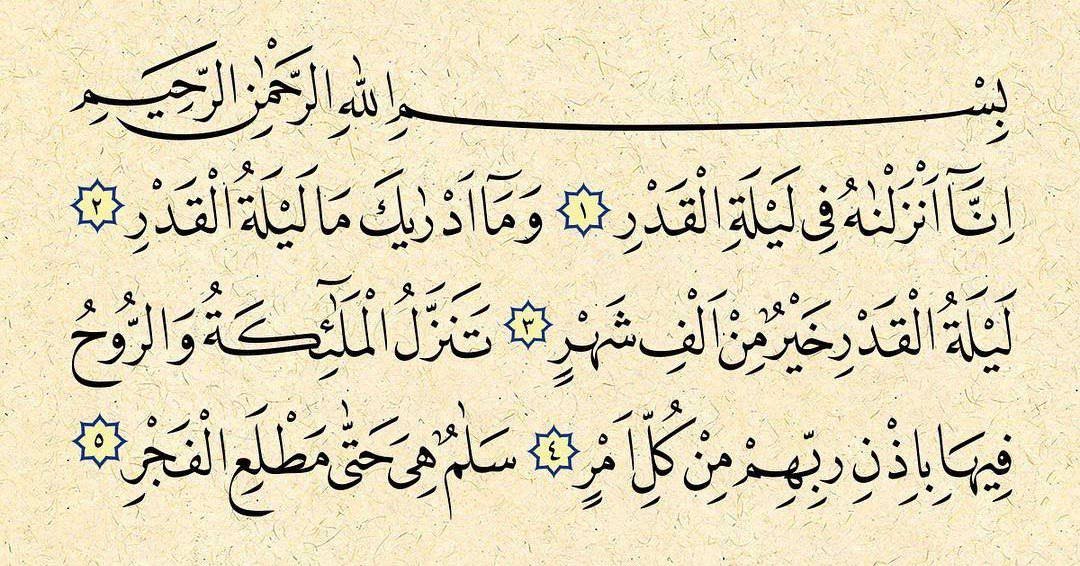 بِسْمِ اللهِ الرَّحْمٰنِ الرَّحِيمِ
اِنَّٓا اَنْزَلْنٰهُ فِى لَيْلَةِ الْقَدْرِ ١ وَمَٓا اَدْرٰيكَ مَا لَيْلَةُ الْقَدْرِ ٢
لَيْلَةُ الْقَدْرِ خَيْرٌ مِنْ اَلْفِ شَهْرٍ ٣ تَنَزَّلُ الْمَلٰٓئِكَةُ وَالرُّوحُ
فِيهَا بِاِذْنِ رَبِّهِمْ مِنْ كُلِّ اَمْرٍ ٤ سَلٰمٌ هِىَ حَتّٰى مَطْلَعِ الْفَجْرِ ٥